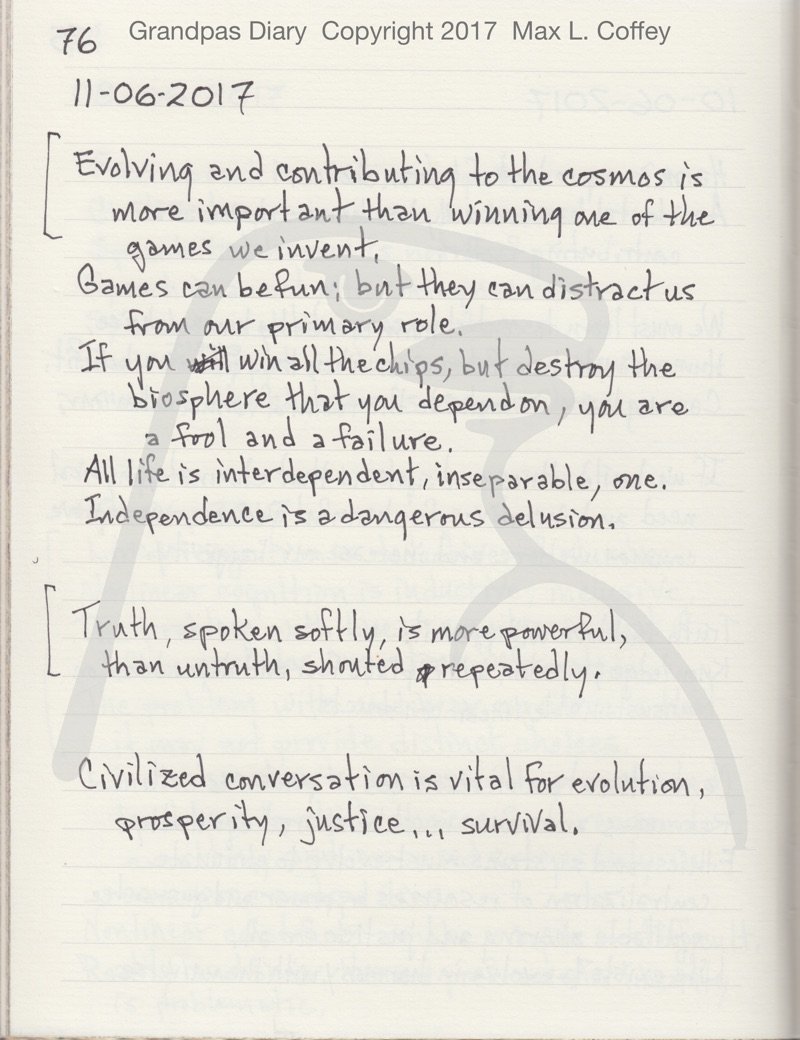 76 Grandpas Diary Copyright 2017 Max L. Coffey
11-06-2017
Evolving and contributing to the cosmos is
more important than winning one of the
games we invent.
Games can be fun; but they can distract us
from our primary role.
If you win all the chips, but destroy the
biosphere that you depend on, you are
a fool and a failure.
All life is interdependent, inseparable, one.
Independence is a dangerous delusion.
Truth, spoken softly, is more powerful,
than untruth, shouted repeatedly.
Civilized conversation is vital for evolution,
prosperity, justice... survival.